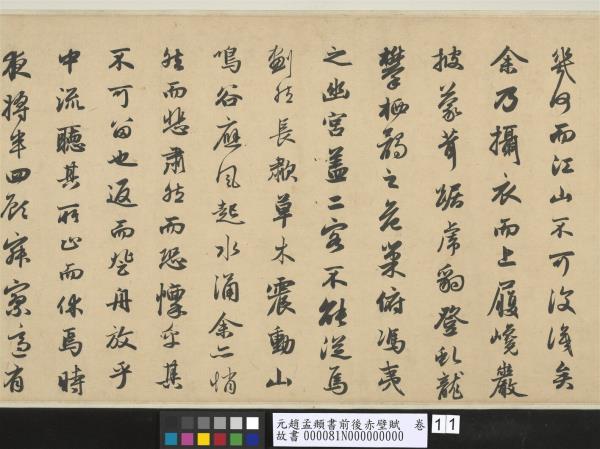 幾何而江山不可復識矣
余乃攝衣而上履巉巖
披蒙茸踞虎豹登虬龍
攀栖鶻之危巢俯馮夷
之幽宮蓋二客不能從焉
劃然長歗草木震動山
鳴谷應風起水涌余亦悄
然而悲肅然而恐懍乎其
不可留也返而登舟放乎
中流聽其所止而休焉時
夜將半四顧寂寥適有
元趙孟頫書前後赤壁賦 卷 11
故書 000081N000000000